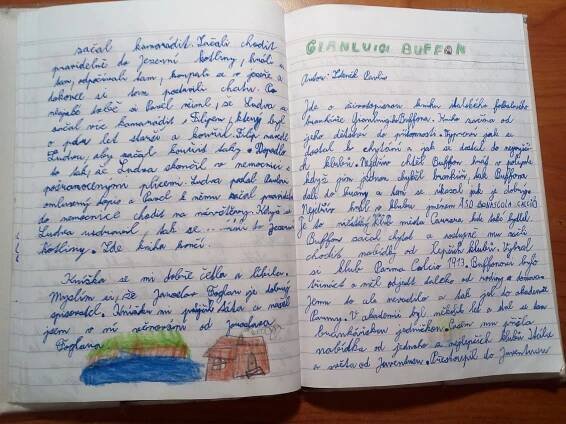 začal kamarádit. Začali chodit
pravidelně do Jezerní kotliny, hráli si
tam, odpočívali tam, koupali se v jezeře a
dokonce si tam postavili chatu. Po
nějaké době si Pavel všiml, že Ludva
začal víc kamarádit s Filipem, který byl
o pár let starší a kouřil. Filip navedl
Ludvu, aby začal kouřit taky. Dopadlo
to tak, že Ludva skončil v nemocnici s
poškozenými plícemi. Ludva poslal Pavlovi
omluvný dopis a Pavel k němu začal pravidelně
do nemocnice chodit na návštěvy. Když se
Ludva uzdravil, tak se do Jezerní
kotliny. Zde kniha končí.
Knížka se mi dobře četla a líbila.
Myslím si, že Jaroslav Foglar je dobrý
spisovatel. Knížku mi půjčil táta a našel
jsem v ní od Jaroslava
Foglara
GIANLUIGI BUFFON
Autor: Zdeněk Pavlis
Jde o životopisnou knihu italského fotbalového
brankáře Gianluigiho Buffona. Kniha začíná od
jeho dětství do přítomnosti. Vypráví jak se
dostal k chytání a jak se dostal do nejvyšších
klubů. Nejdříve chtěl Buffon hrát v poli, ale
když jim jednou chyběl brankář, tak Buffona
dali do brány a tam se ukázal jak je dobrý.
Nejdřív hrál v klubu jménem ASD
Je to městský klub města Carrara, kde také bydlel.
Buffon začal chytat a postupně mu začali
chodit nabídky od lepších klubů. Vybral
si klub Parma Calcio 1913. Buffonovi bylo
třináct a měl odjet daleko od rodiny a domova.
Jemu to ale nevadilo a tak jel do akademie
Parmy. V akademii byl několik let a stal se tam
brankářskou jedničkou. Potom mu přišla
nabídka od jednoho z nejlepších klubů Itálie
a světa od Juventusu. Přestoupil do Juventusu